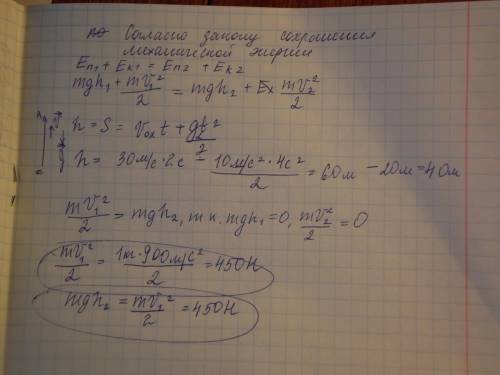 Согласно закону сохранения
механической энергии
Eп1 + Eк1 = Eп2 + Eк2
mgh₁ + mV₁²/2 = mgh₂ + Eк mV₂²/2
h = S = V₀ₓt + gt²/2
h = 30м/с · 2с − 10м/с² · 4с²/2 = 60м − 20м = 40м
mV₁²/2 = mgh₂, т к. mgh₁ = 0, mV₂²/2 = 0
mV₁²/2 = 1кг · 900м/с²/2 = 450Н
mgh₂ = mV₁²/2 = 450Н